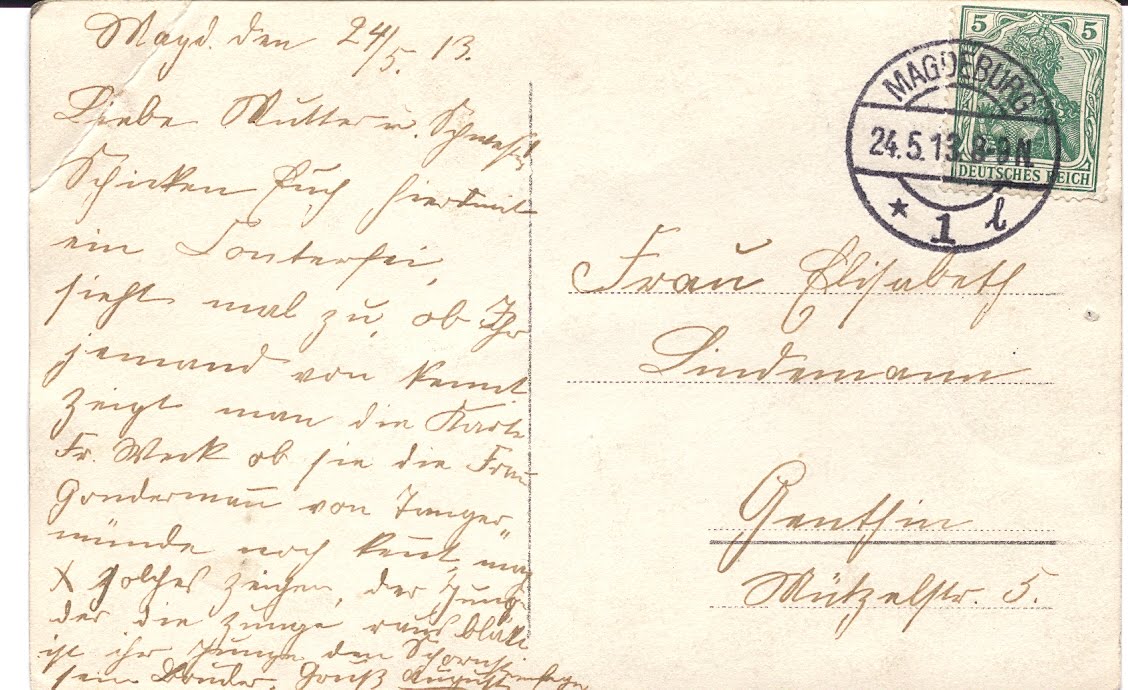 Magd. den 24/5. 13.
Liebe Mutter u. Schwest.
Schicken Euch hiermit
ein Conterfei,
sieht mal zu, ob Ihr
jemand von kennt
zeigt man die Karte
Fr. Weck ob sie die Frau
Gondermann von Tanger„
münde noch kennt,
X solches zeichen, der Junge
der die Zunge raus bläkt
ist ihr Junge, den Schornsteinfeger
sein Bruder. Gruß August
5 5
DEUTSCHES REICH
MAGDEBURG
24.5.13.8-9N
* 1 l
Frau Elisabeth
Lindemann
Genthin
Mützelstr. 5.